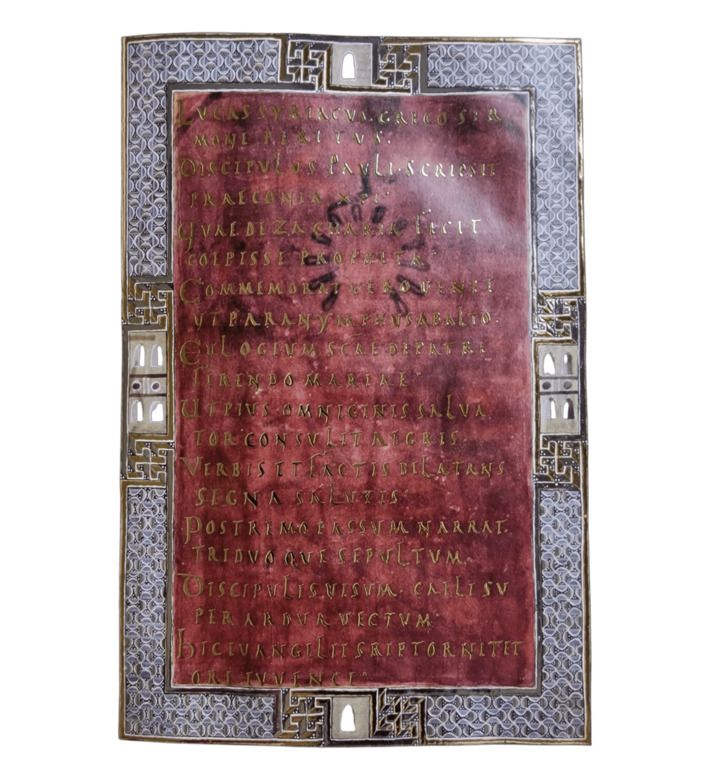 LUCAS SYRIACUS GRECO SER
MONE PERITUS.
DISCIPULUS PAULI. SCRIPSIT
PRAECONIA XPI.
QUALE DE ZACHARIA FECIT
COEPISSE PROPHETA.
COMMEMORAT VERO VENIT
UT PARANYMPHUS AB ALTO.
EULOGIUM SCAE DE PATRE
FERENDO MARIAE
UT PIUS OMNIGINIS SALVA
TOR CONSULIT AEGRIS.
VERBIS ET FACTIS DILATANS
SEGNA SALUTIS
POSTREMO PASSUM NARRAT.
TRIDUOQUE SEPULTUM.
DISCIPULIS VISUM. CAELI SU
PER ARDUA VECTUM
HIC EVANGELII SRIPTOR NITET
ORE IUVENCE